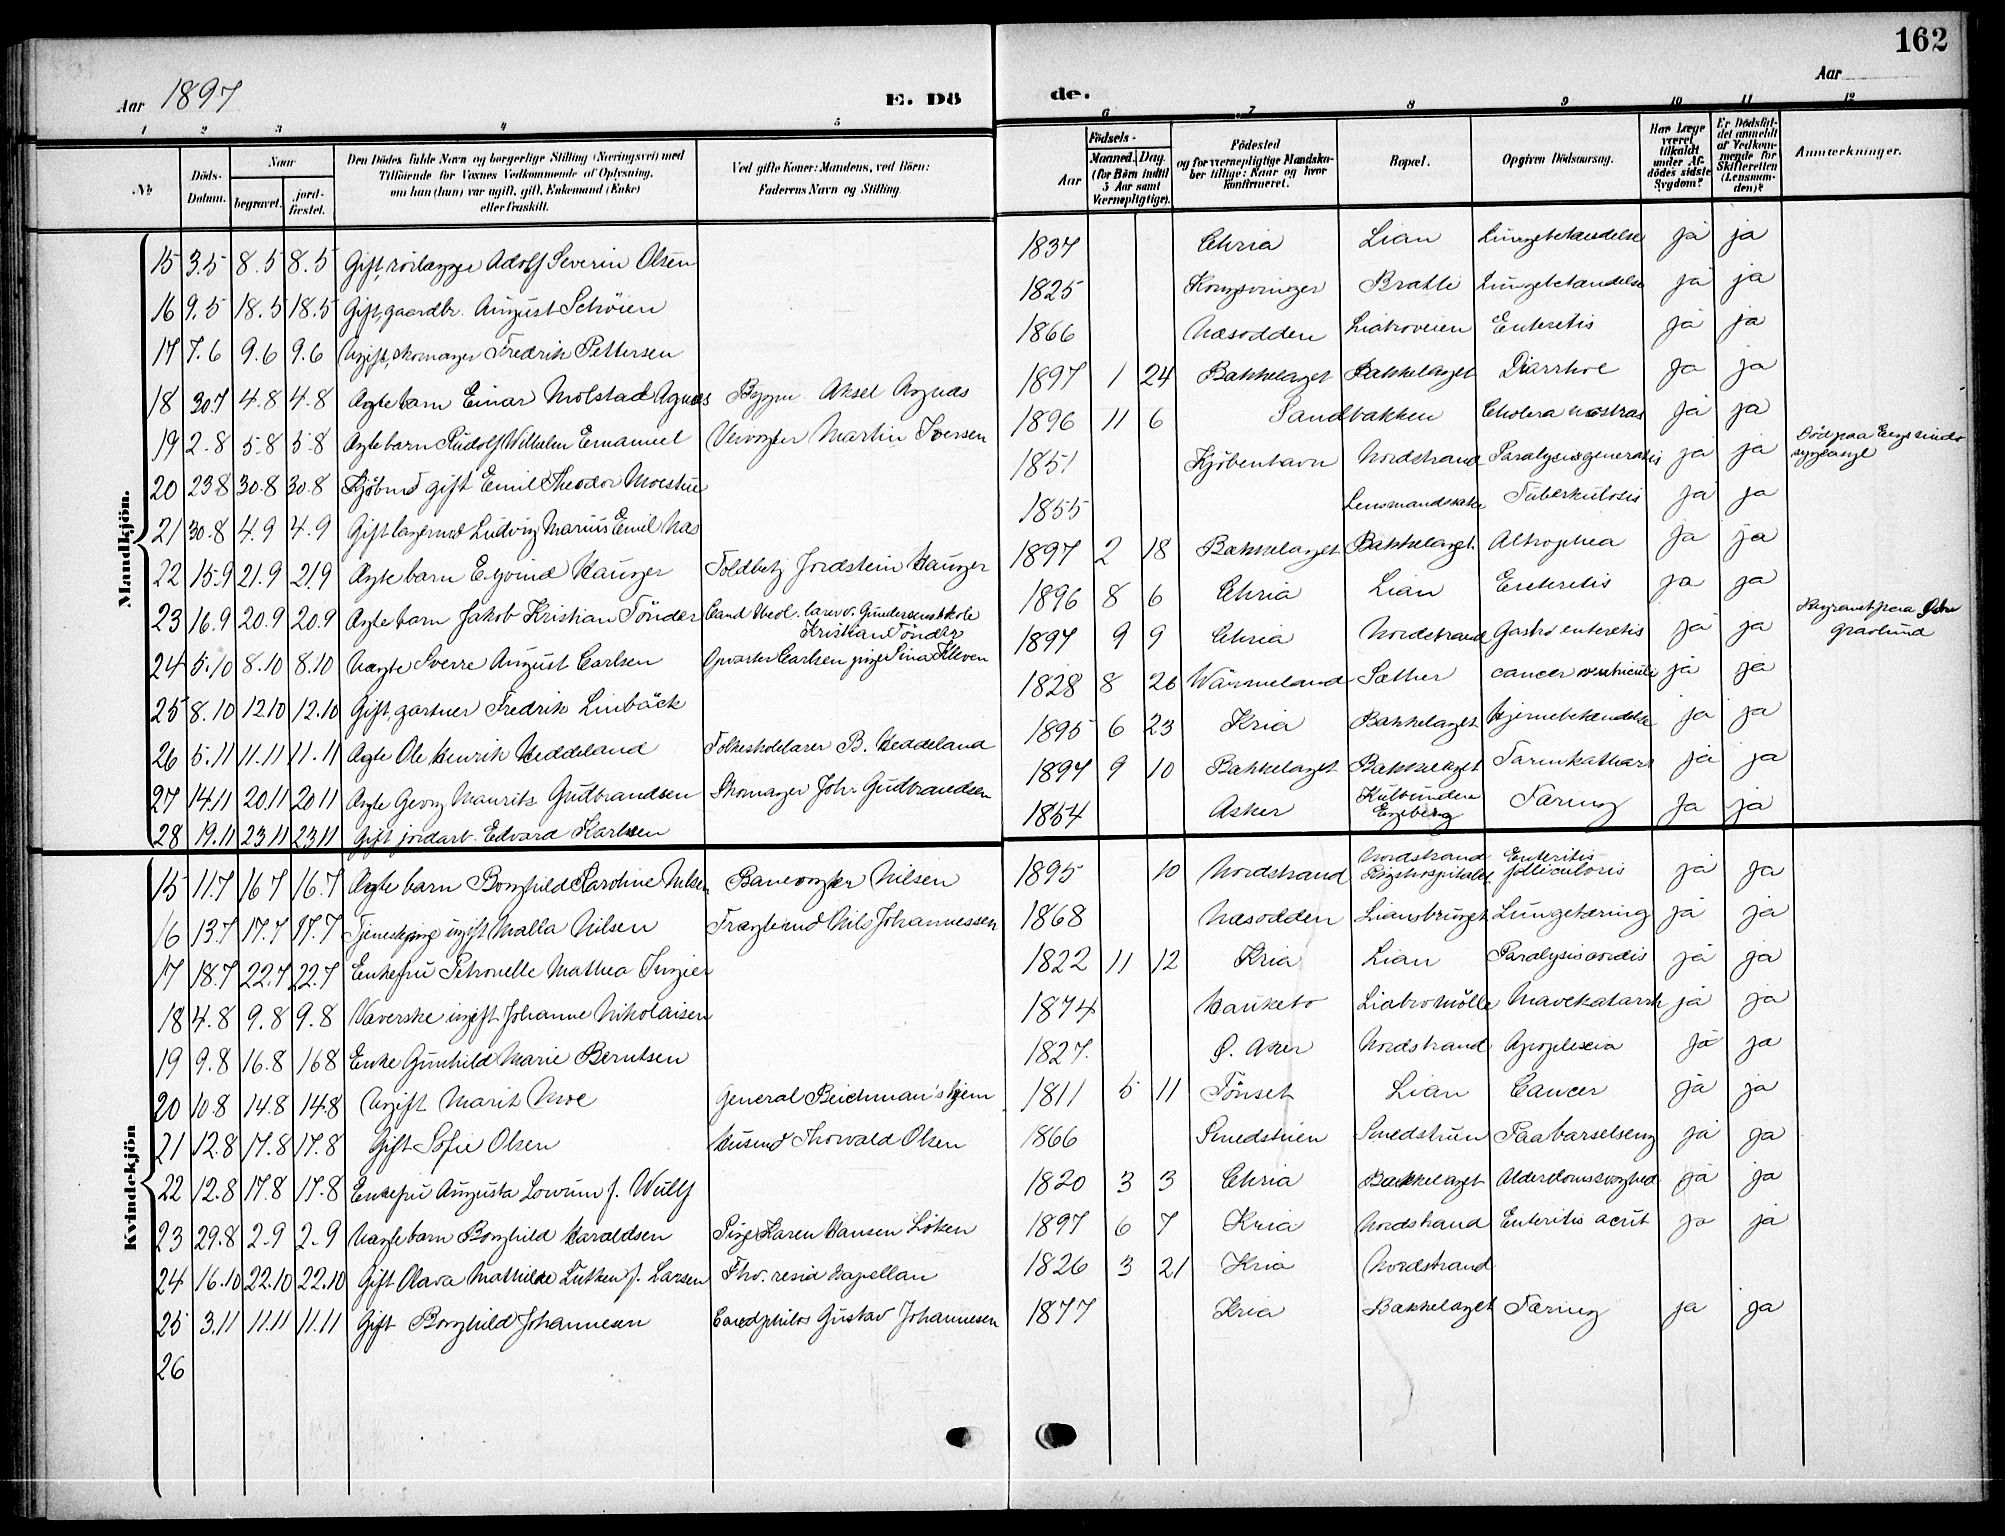 162
Aar 1897 E. Dö de. Aar
1 2 3 4 5 6 7 8 9 10 11 12
No Döds-Datum. Naar begravet. jord-fæstet. Den Dödes fulde Navn og borgerlige Stilling (Næringsvei) med Tilföiende for Voxnes Vedkommende af Oplysning, om han (hun) var ugift, gift, Enkemand (Enke) eller fraskilt. Ved gifte Koner: Mandens, ved Börn: Faderens Navn og Stilling. Födsels- Aar Maaned. Dag. (for Börn indtil 5 Aar samt Værnepligtige). Födested og for værnepligtige Mandska-ber tillige: Naar og hvor konfirmeret. Bopæl. Opgiven Dödsaarsag. Har Læge været tilkaldt under Af-dödes sidste Sygdom? Er Dödsfal-det anmeldt af Vedkom-mende for Skifteretten (Lensman-den)? Anmærkninger.
Mandkjön.
15 3.5 8.5 8.5 Gift, rörlægger Adolf Severin Olsen 1837 Chria Lian Lungebetændelse ja ja
16 9.5 18.5 18.5 Gift, gaardbr. August Schöien 1825 Kongsvinger Bratli Lungebetændelse ja ja
17 7.6 9.6 9.6 Ugift, skomager Fredrik Pettersen 1866 Næsodden Liabroveien Enteritis ja ja
18 30.7 4.8 4.8 Ægte barn Einar Molstad Agnæs Bygm Aksel Agnæs 1897 1 24 Bakkelaget Bakkelaget Diarrhoe Ja ja
19 2.8 5.8 5.8 Ægte barn Rudolf Wilhelm Emanuel Veivogter Martin Iversen 1896 11 6 Sandbakken Cholera nostras ja ja
20 23.8 30.8 30.8 Kjöbmd gift Emil Theodor Moestue 1851 Kjöbenhavn Nordstrand Paralysis generalis ja ja Död paa Eugstinds sygeasyl
21 30.8 4.9 4.9 Gift lagermd Ludvig Marius Emil Næs 1855 Lensmandsbakk Tuberkulosis ja ja
22 15.9 21.9 21.9 Ægte barn Eyvind Hauger Toldbetj Jordstein Hauger 1897 2 18 Bakkelaget Bakkelaget Altrophea Ja ja
23 16.9 20.9 20.9 Ægte barn Jakob Kristian Tönder Cand theol. lærer v. Gundersens skole Kristian Tönder 1896 8 6 Chria Lian Enteritis ja ja
24 5.10 8.10 8.10 Uægte Sverre August Carlsen Opvarter Carlsen pige Lina Kleven 1897 9 9 Chria Nordstrand Gastro enteritis ja ja Begravet paa Östre gravlund
25 8.10 12.10 12.10 Gift, gartner Fredrik Linbäck 1828 8 26 Wärmeland Sæther cancer ventriculi ja ja
26 5.11 11.11 11.11 Ægte Ole Henrik Heddeland Folkeskolelærer B. Heddeland 1895 6 23 Kria Bakkelaget Hjernebetændelse ja ja
27 14.11 20.11 20.11 Ægte Georg Maurits Gudbrandsen Skomager Johs Gudbrandsen 1897 9 10 Bakkelaget Bakkelaget Tarmkatharr ja ja
28 19.11 23.11 23.11 Gift jordarb. Edvard Karlsen 1854 Asker Engeberg Tæring Ja ja
Kvindekjön
15 11.7 16.7 16.7 Ægte barn Borghild Karoline Nilsen Banevogter Nilsen 1895 10 Nordstrand Nordstrand Rigshospitalet Enteritis follicularis ja ja
16 13.7 17.7 17.7 Tjenestepige ugift Malla Nilsen Nils Johannessen 1868 Næsodden Liansbruget Lungetæring ja ja
17 18.7 22.7 22.7 Enkefru Petronelle Mathea Ingier 1822 11 12 Kria Lian Paralysis cordis ja ja
18 4.8 9.8 9.8 Væverske ugift Johanne Nikolaisen 1874 Hauketo Liabro mölle Mavekatarrh ja ja
19 9.8 16.8 16.8 Enke Gunhild Marie Berntsen 1827. Ö. Aker Nordstrand Apoplexia Ja ja
20 10.8 14.8 14.8 Ugift Marit Moe General Beichman's hjem 1811 5 11 Tönset Lian Cancer ja ja
21 12.8 17.8 17.8 Gift Sofie Olsen Husmd Thorvald Olsen 1866 Smedstuen Smedstuen Paa barselseng ja ja
22 12.8 17.8 17.8 Enkefru Augusta Lowum f. Wulf 1820 3 3 Chria Bækkelaget Alderdomssvaghed ja ja
23 29.8 2.9 2.9 Uægte barn Borghild Haraldsen Pige Karen Hansen Löken 1897 6 7 Kria Nordstrand Enteritis acut ja ja
24 16.10 22.10 22.10 Gift Olava Mathilde Lütken f. Larsen Fhv. resid kapellan 1826 3 21 Kria Nordstrand
25 3.11 11.11 11.11 Gift Borghild Johannesen Candphilos Gustav Johannesen 1877 Kria Bakkelaget Tæring ja ja
26